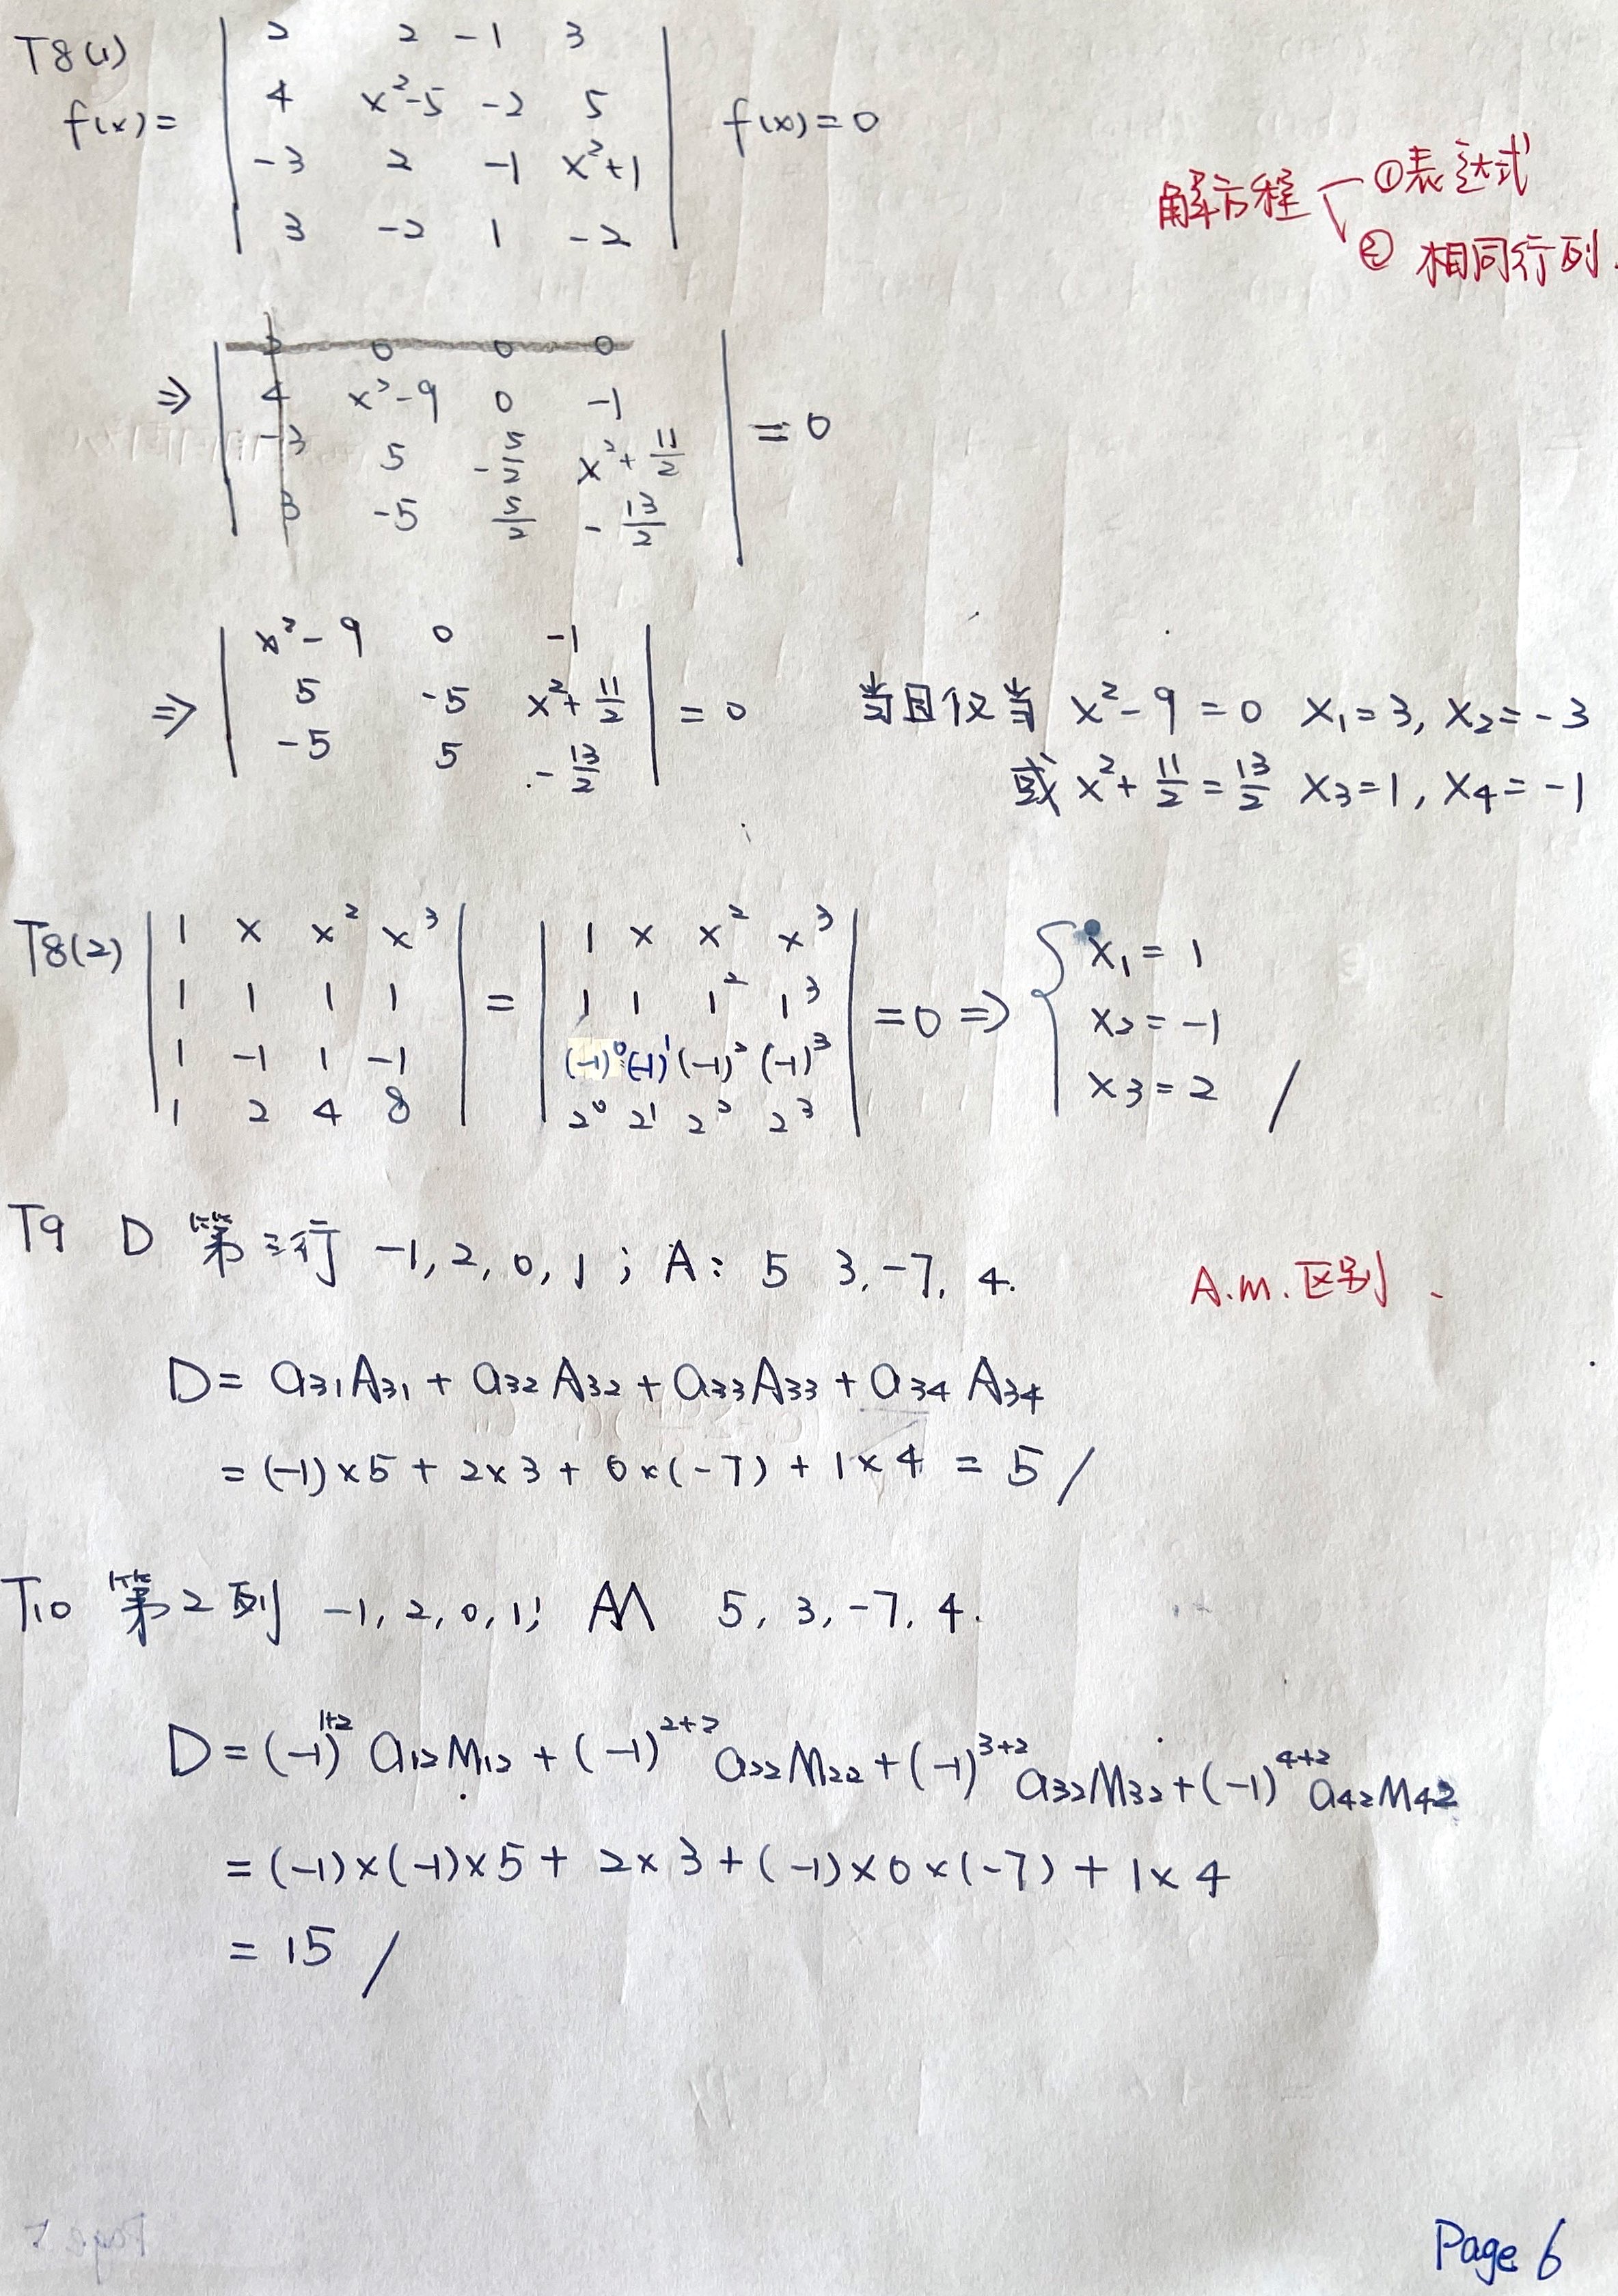 T8(1)
f(x)= | 2 2 -1 3 | f(x)=0
| 4 x²-5 -2 5 |
| -3 2 -1 x²+1 |
| 3 -2 1 -2 |
解方程 ①表达式
② 相同行列.
⇒ | 2 0 0 0 | =0
| 4 x²-9 0 -1 |
| -3 5 -5/2 x²+11/2 |
| 3 -5 5/2 -13/2 |
⇒ | x²-9 0 -1 | =0
| 5 -5 x²+11/2 |
| -5 5 -13/2 |
当且仅当 x²-9=0 x₁=3, x₂=-3
或 x²+11/2=13/2 x₃=1, x₄=-1
T8(2) | 1 x x² x³ | = | 1 x x² x³ | =0 ⇒ { x₁=1
| 1 1 1 1 | | 1 1 1² 1³ | x₂=-1
| 1 -1 1 -1 | | (-1)⁰ (-1)¹ (-1)² (-1)³ | x₃=2 /
| 1 2 4 8 | | 2⁰ 2¹ 2² 2³ |
T9 D 第三行 -1, 2, 0, 1; A: 5 3, -7, 4.
A.M.区别.
D= a₃₁A₃₁ + a₃₂A₃₂ + a₃₃A₃₃ + a₃₄A₃₄
= (-1)×5 + 2×3 + 0×(-7) + 1×4 = 5 /
T10 第2列 -1, 2, 0, 1; M 5, 3, -7, 4.
D= (-1)¹⁺² a₁₂M₁₂ + (-1)²⁺² a₂₂M₂₂ + (-1)³⁺² a₃₂M₃₂ + (-1)⁴⁺² a₄₂M₄₂
= (-1)×(-1)×5 + 2×3 + (-1)×0×(-7) + 1×4
= 15 /
Page 6